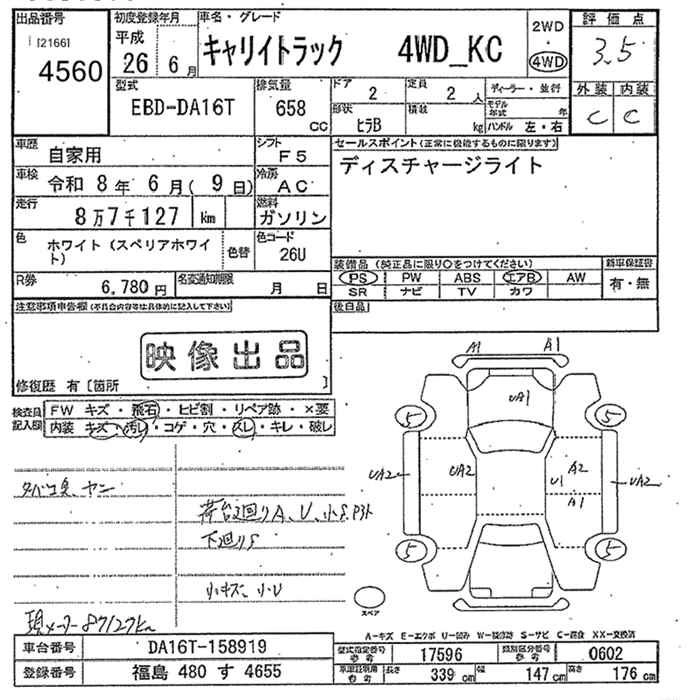 出品番号
[2166]
4560
初度登録年月
平成
26年6月
車名・グレード
キャリイトラック 4WD_KC
2WD
・
4WD
評価点
3.5
外装 内装
C C
型式
EBD-DA16T
排気量
658
CC
ドア
2
定員
2人
形状
ヒラB
積載
kg
ディーラー・並行
モデル年式 年
ハンドル 左・右
車歴
自家用
シフト
F5
車検
令和 8年 6月( 9日)
冷房
AC
走行
8万7千127 km
燃料
ガソリン
色
ホワイト(スペリアホワイト)
色替
色コード
26U
R券
6,780円
名変通知期限
月 日
セールスポイント(正常に機能するものに限ります)
ディスチャージライト
装備品(純正品に限り○をつけてください)
PS PW ABS エアB AW
SR ナビ TV カワ
新車保証書
有・無
後日品
注意事項申告欄(不具合内容等は具体的に記入して下さい)
映像出品
修復歴 有〔箇所 〕
検査員記入欄
FW キズ・飛石・ヒビ割・リペア跡・×要
内装 キズ・汚レ・コゲ・穴・スレ・キレ・破レ
タバコ臭、ヤニ
荷台廻りA、U、小S,P外
下廻りS
小キズ、小U
現メーター87127km
A1 A1
UA1
5 5
UA2 UA2 U1 A2 UA2
A1
5 5
スペア
A-キズ E-エクボ U-凹み W-補修跡 S-サビ C-腐食 XX-交換済
車台番号
DA16T-158919
登録番号
福島 480 す 4655
型式指定番号
参考
17596
類別区分番号
参考
0602
車庫証明用
参考
長さ 339cm
幅 147cm
高さ 176cm